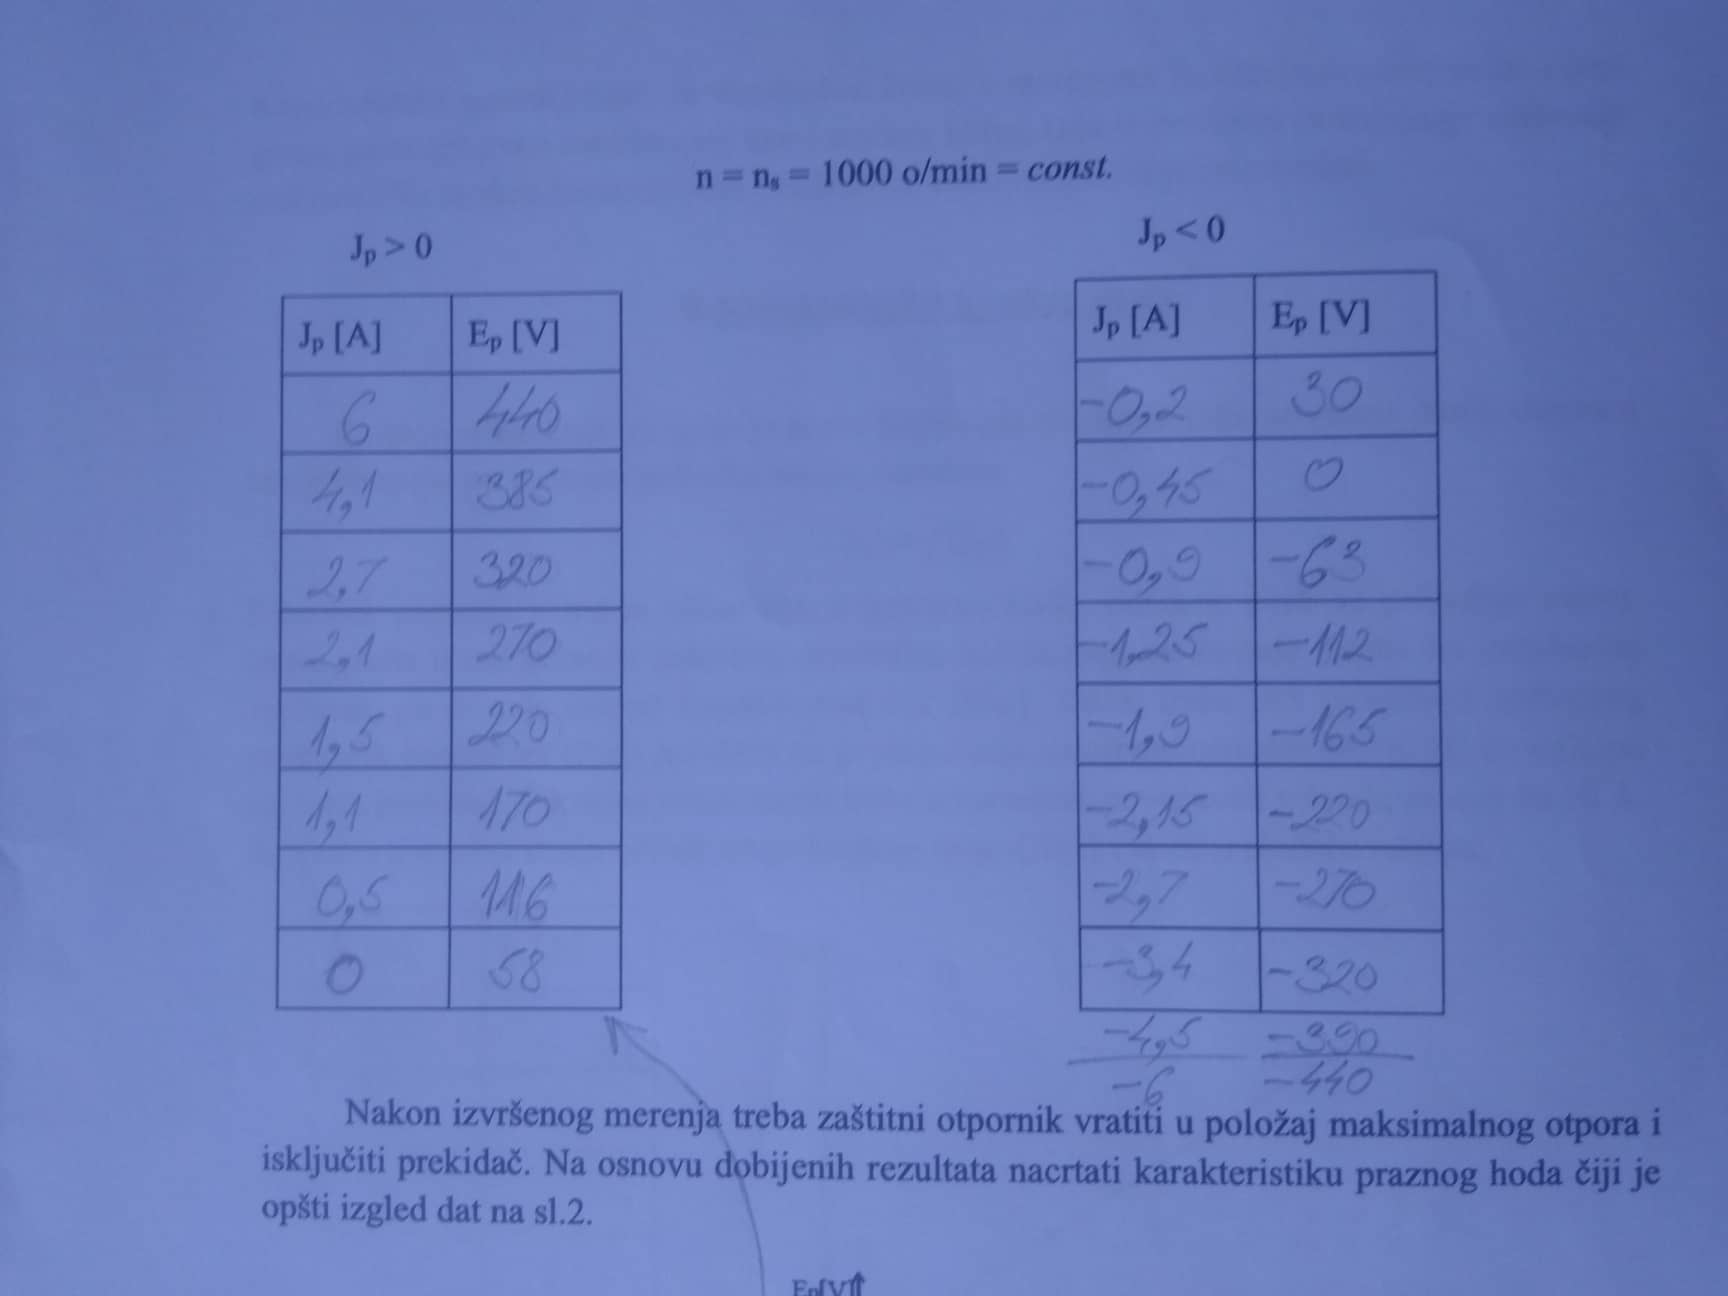 n = nₛ = 1000 o/min = const.
Jₚ > 0
Jₚ [A] Eₚ [V]
6 440
4,1 385
2,7 320
2,1 270
1,5 220
1,1 170
0,5 116
0 58
Jₚ < 0
Jₚ [A] Eₚ [V]
-0,2 30
-0,45 0
-0,9 -63
-1,25 -112
-1,9 -165
-2,15 -220
-2,7 -270
-3,4 -320
-4,5 -390
-6 -440
Nakon izvršenog merenja treba zaštitni otpornik vratiti u položaj maksimalnog otpora i
isključiti prekidač. Na osnovu dobijenih rezultata nacrtati karakteristiku praznog hoda čiji je
opšti izgled dat na sl.2.
Eₚ[V]